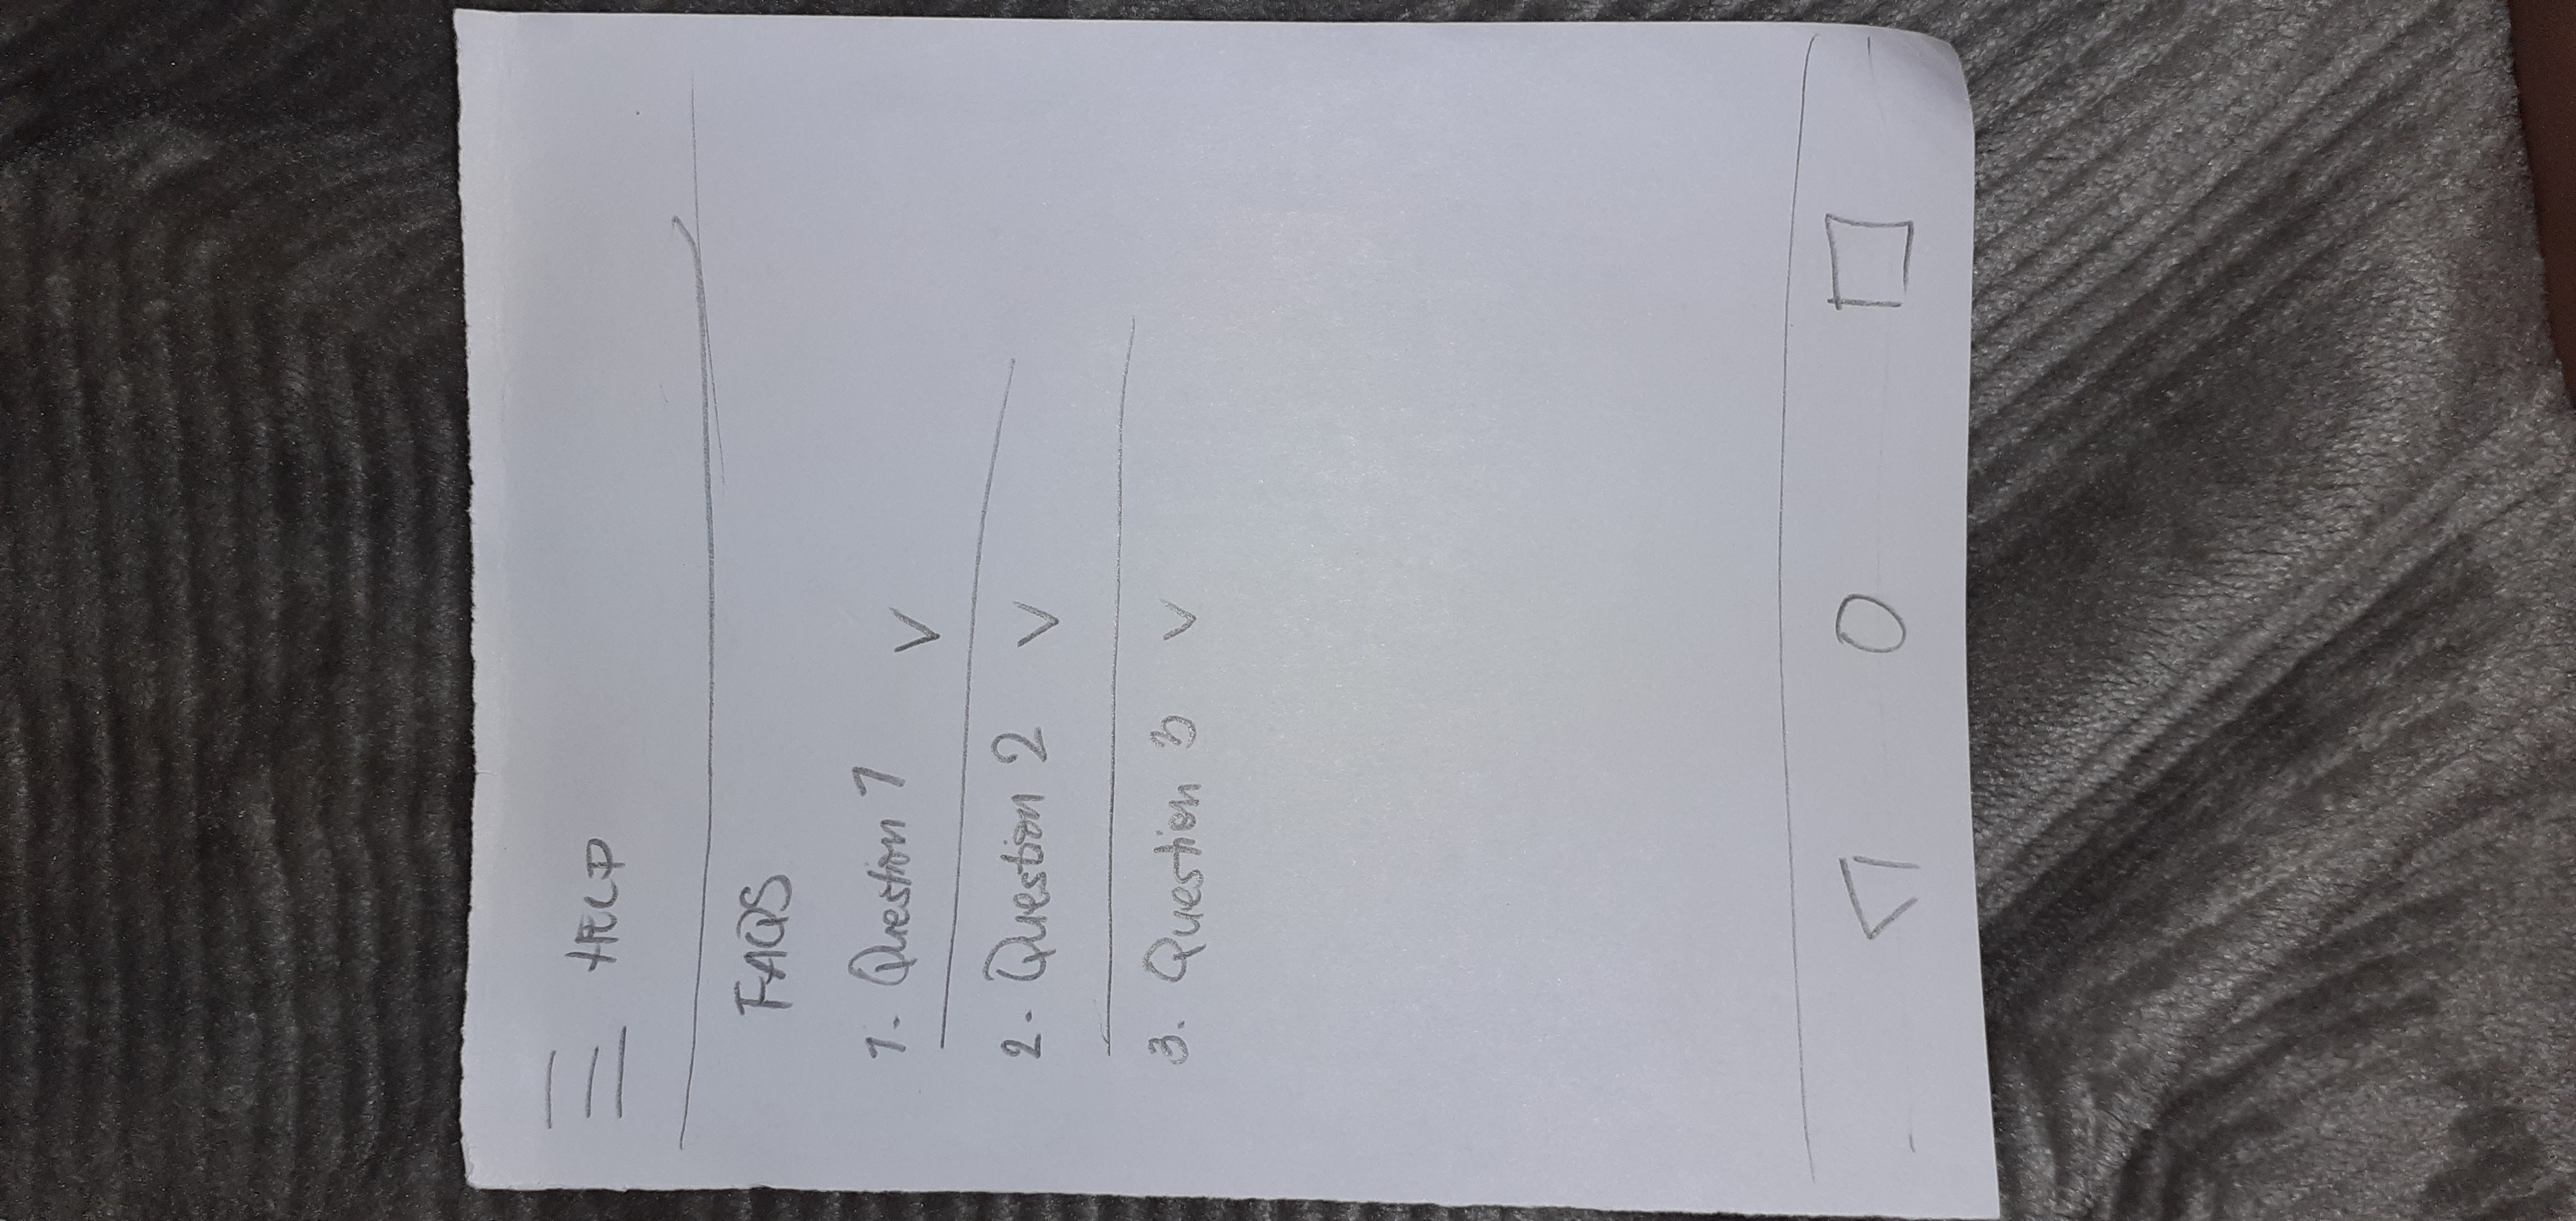 HELP
FAQS
1. Question 1
2. Question 2
3. Question 3